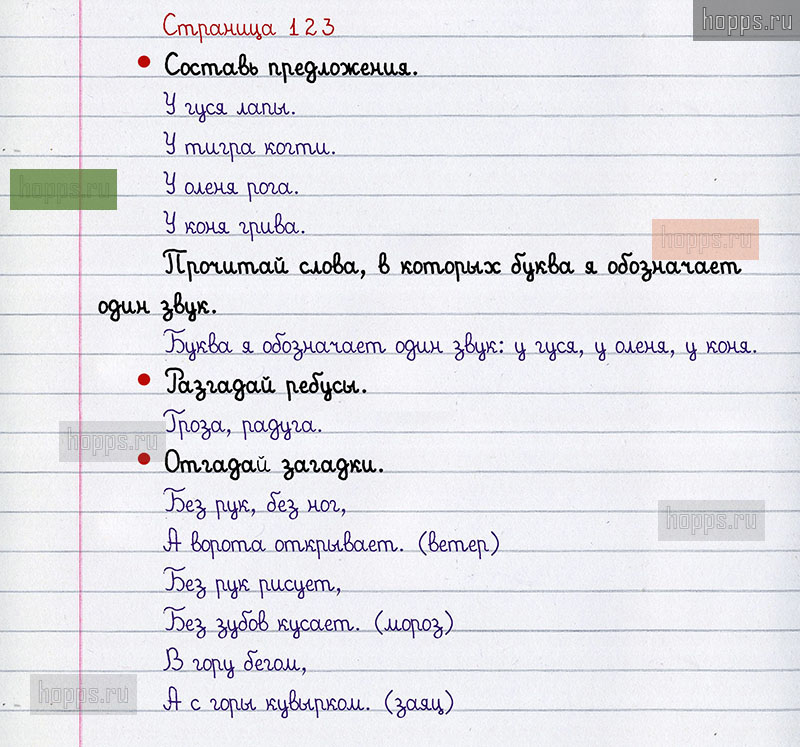 hopps.ru
Страница 123
Составь предложения.
У гуся лапы.
У тигра когти.
hopps.ru
У оленя рога.
У коня грива.
hopps.ru
Прочитай слова, в которых буква я обозначает
один звук.
Буква я обозначает один звук: у гуся, у оленя, у коня.
Разгадай ребусы.
Гроза, радуга.
hopps.ru
Отгадай загадки.
Без рук, без ног,
hopps.ru
А ворота открывает. (ветер)
Без рук рисует,
Без зубов кусает. (мороз)
В гору бегом,
hopps.ru
А с горы кувырком. (заяц)